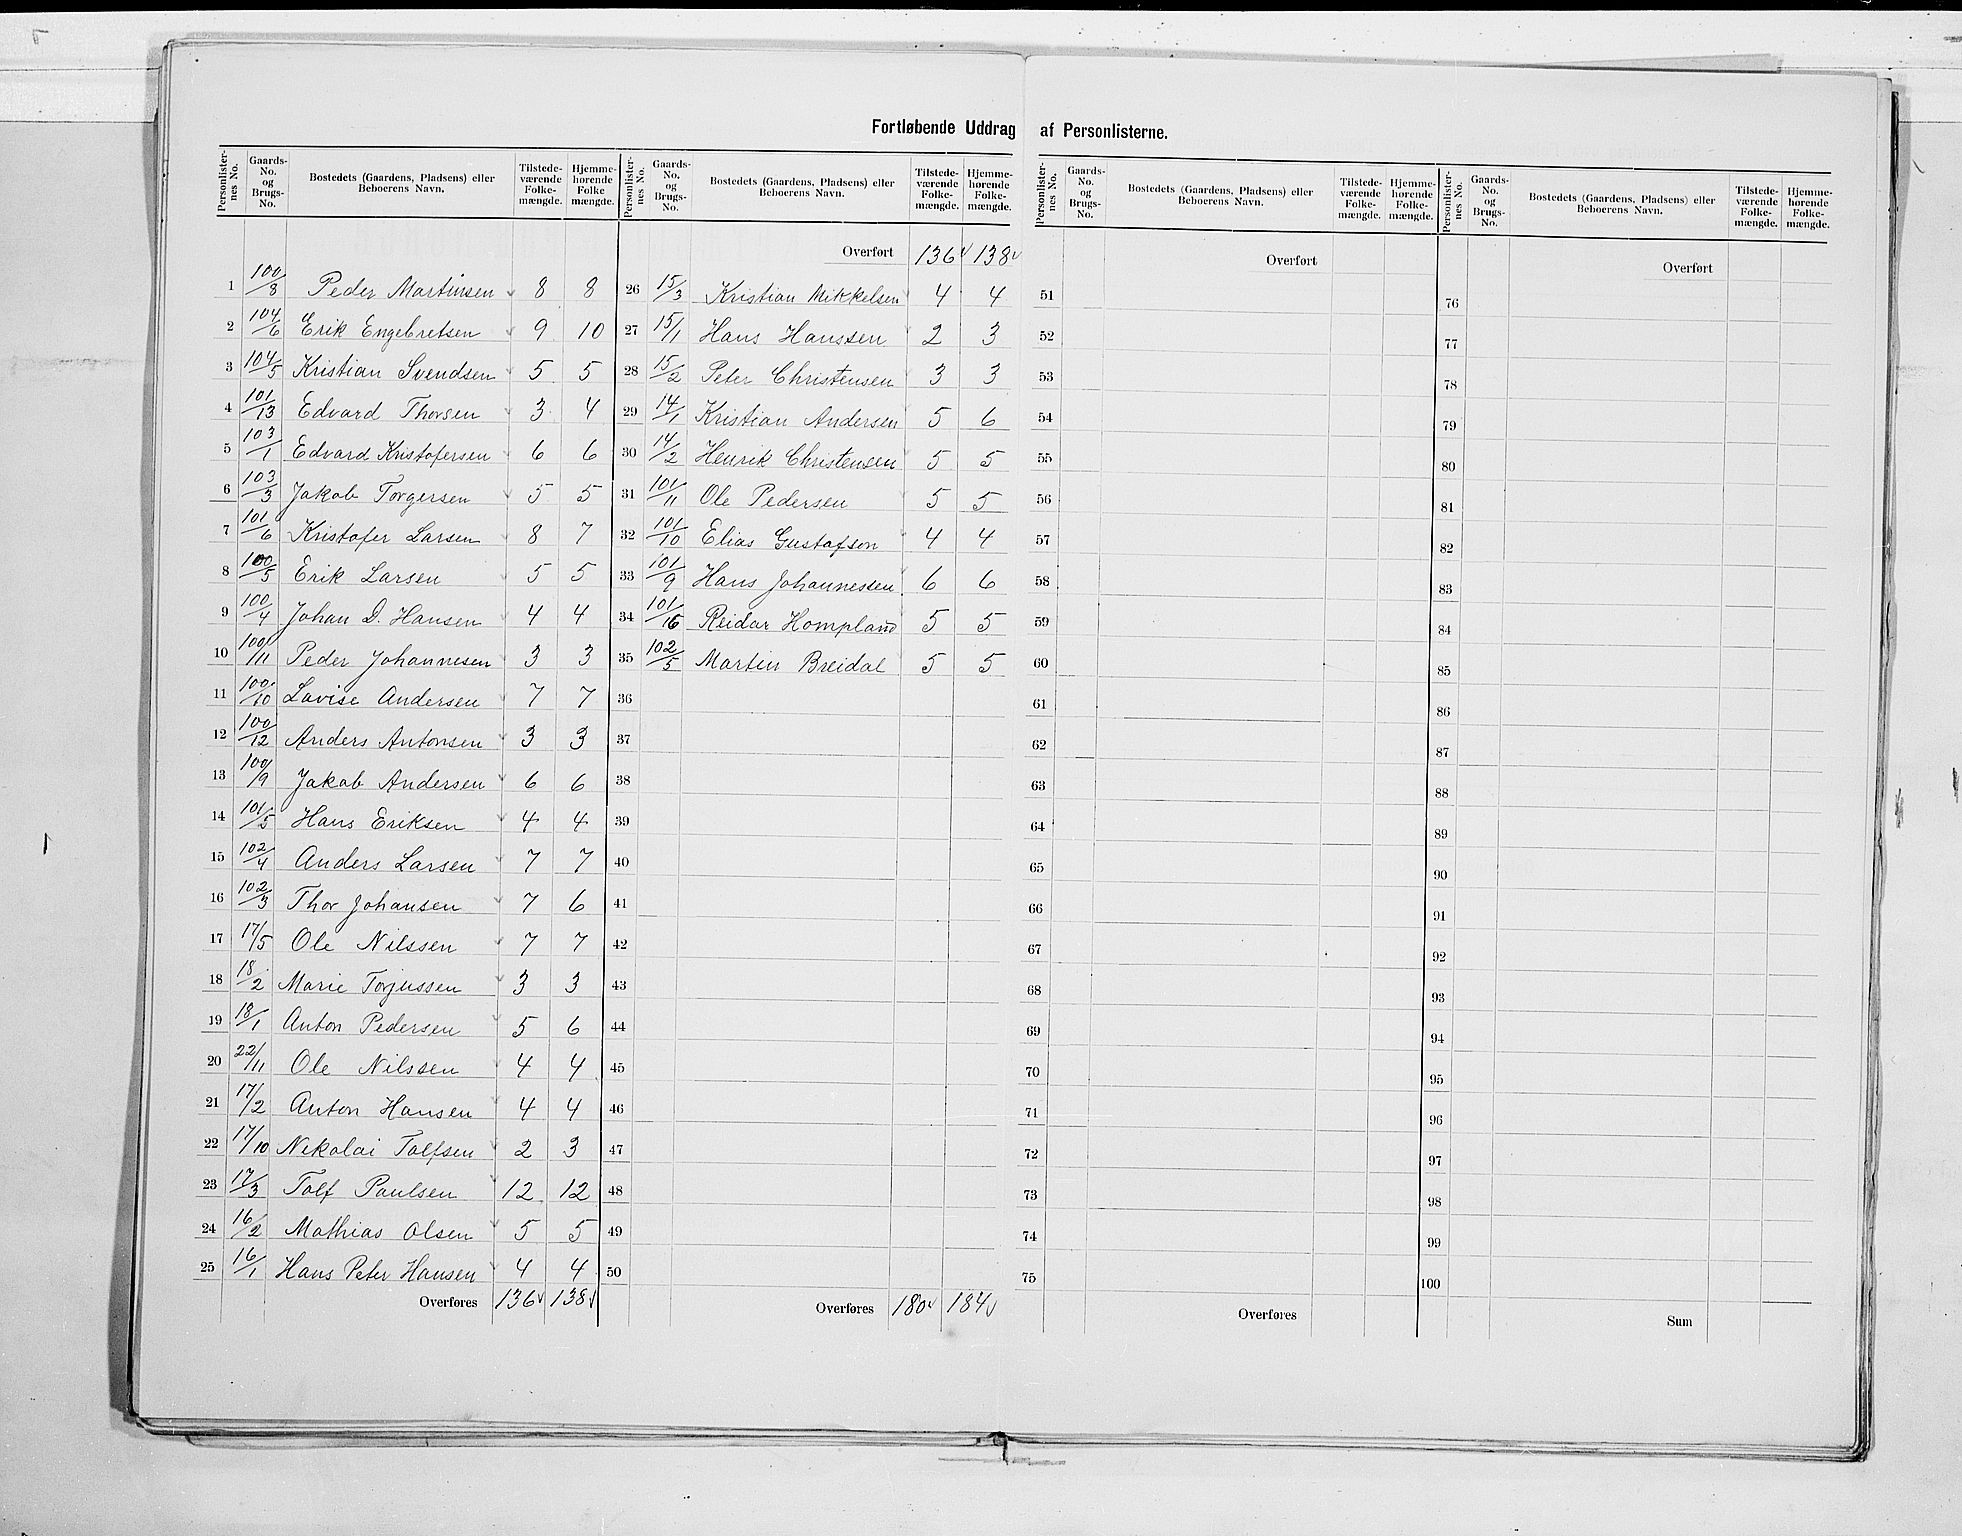 Fortløbende Uddrag af Personlisterne.
Personlisternes No. | Gaards-No. og Brugs-No. | Bostedets (Gaardens, Pladsens) eller Beboerens Navn. | Tilstedeværende Folkemængde. | Hjemmehørende Folkemængde.
1 100/8 Peder Martinsen 8 8
2 104/6 Erik Engebretsen 9 10
3 104/5 Kristian Svendsen 5 5
4 101/13 Edvard Thorsen 3 4
5 103/1 Edvard Kristofersen 6 6
6 103/3 Jakob Torgersen 5 5
7 101/6 Kristofer Larsen 8 7
8 100/5 Erik Larsen 5 5
9 100/4 Johan D. Hansen 4 4
10 100/11 Peder Johannesen 3 3
11 100/10 Lovise Andersen 7 7
12 100/12 Anders Antonsen 3 3
13 100/9 Jakob Andersen 6 6
14 101/5 Hans Eriksen 4 4
15 102/4 Anders Larsen 7 7
16 102/3 Thor Johansen 7 6
17 17/5 Ole Nilssen 7 7
18 18/2 Marie Torjussen 3 3
19 18/1 Anton Pedersen 5 6
20 22/11 Ole Nilssen 4 4
21 17/2 Anton Hansen 4 4
22 17/10 Nekolai Tolfsen 2 3
23 17/3 Tolf Paulsen 12 12
24 16/2 Mathias Olsen 5 5
25 16/1 Hans Peter Hansen 4 4
Overføres 136 138
Personlisternes No. | Gaards-No. og Brugs-No. | Bostedets (Gaardens, Pladsens) eller Beboerens Navn. | Tilstedeværende Folkemængde. | Hjemmehørende Folkemængde.
Overført 136 138
26 15/3 Kristian Mikkelsen 4 4
27 15/1 Hans Hanssen 2 3
28 15/2 Peter Christensen 3 3
29 14/1 Kristian Andersen 5 6
30 14/2 Henrik Christensen 5 5
31 101/11 Ole Pedersen 5 5
32 101/10 Elias Gustafson 4 4
33 101/9 Hans Johannessen 6 6
34 101/16 Reidar Hompland 5 5
35 102/5 Martin Breidal 5 5
36
37
38
39
40
41
42
43
44
45
46
47
48
49
50
Overføres 180 184
Personlisternes No. | Gaards-No. og Brugs-No. | Bostedets (Gaardens, Pladsens) eller Beboerens Navn. | Tilstedeværende Folkemængde. | Hjemmehørende Folkemængde.
Overført
51
52
53
54
55
56
57
58
59
60
61
62
63
64
65
66
67
68
69
70
71
72
73
74
75
Overføres
Personlisternes No. | Gaards-No. og Brugs-No. | Bostedets (Gaardens, Pladsens) eller Beboerens Navn. | Tilstedeværende Folkemængde. | Hjemmehørende Folkemængde.
Overført
76
77
78
79
80
81
82
83
84
85
86
87
88
89
90
91
92
93
94
95
96
97
98
99
100
Sum